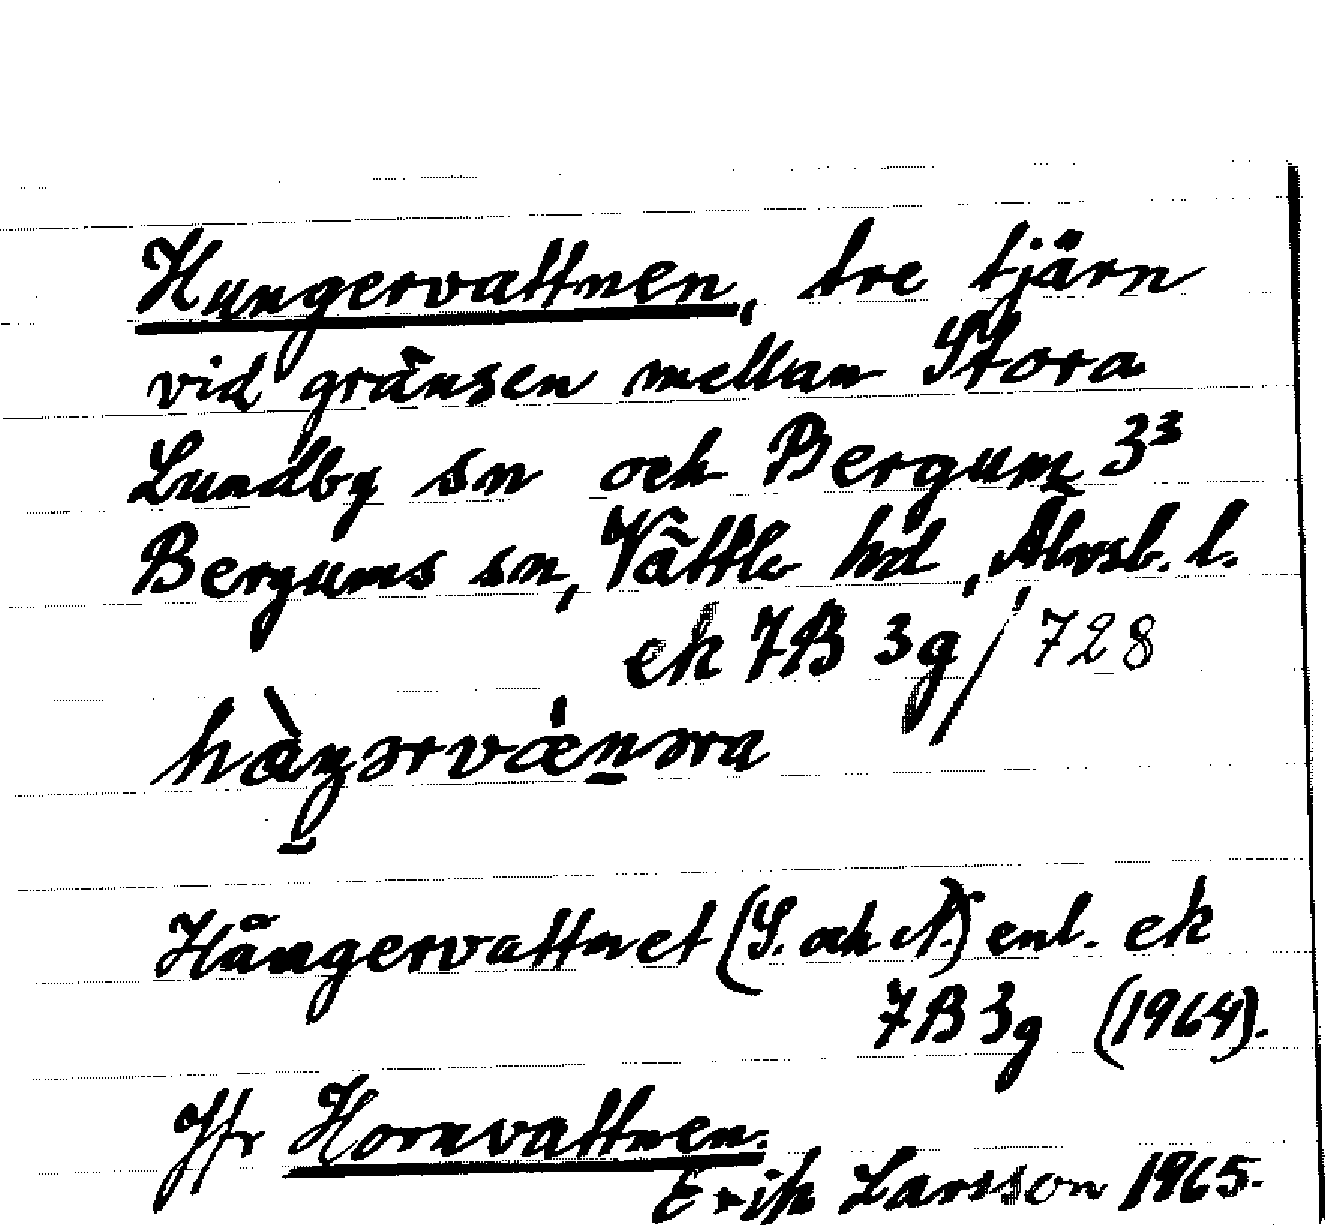 Hungervattnen, tre tjärn
vid gränsen mellan Stora
Lundby sn och Bergum 3³
Bergums sn, Vättle hd, Älvsb. l.
ek 7B 3g/728
Hångervattnet (S. och N.) enl. ek
7B 3g (1964).
Jfr Hornvattnen.
Erik Larsson 1965.